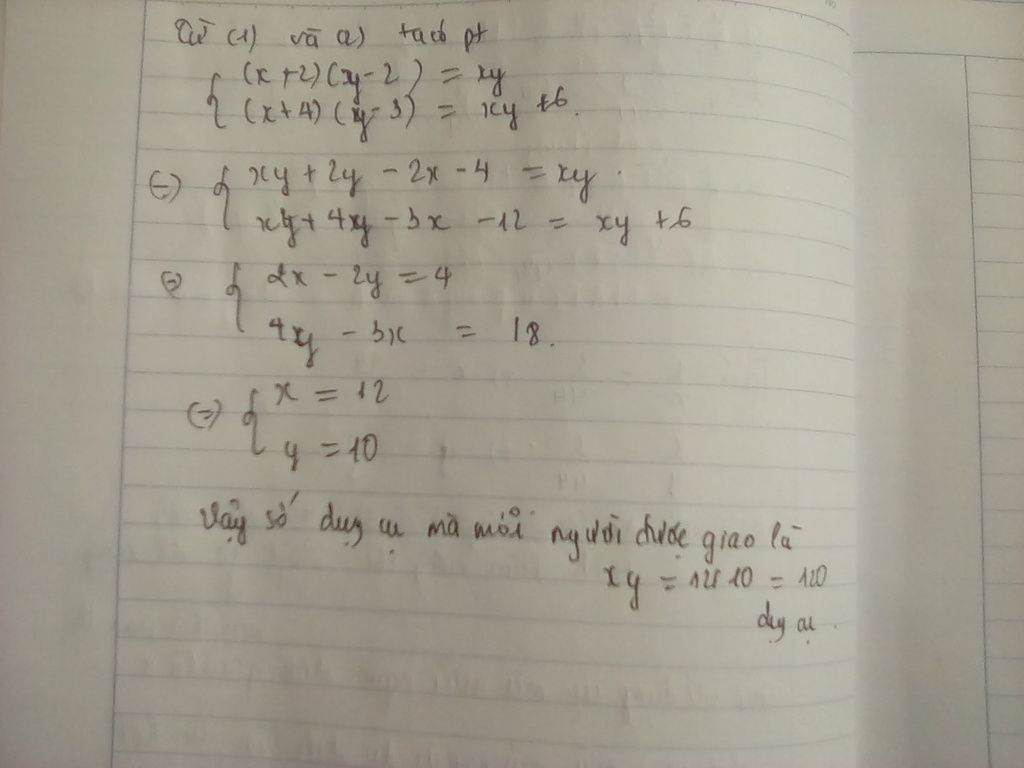 Từ (1) và (2) ta có pt
(x + 2) (y - 2) = xy
(x + 4) (y - 3) = xy + 6.
(=) xy + 2y - 2x - 4 = xy.
xy + 4y - 3x - 12 = xy + 6
(=) 2x - 2y = 4
4y - 3x = 18.
(=) x = 12
y = 10
Vậy số dụng cụ mà mỗi người được giao là
xy = 12 . 10 = 120
dụng cụ.